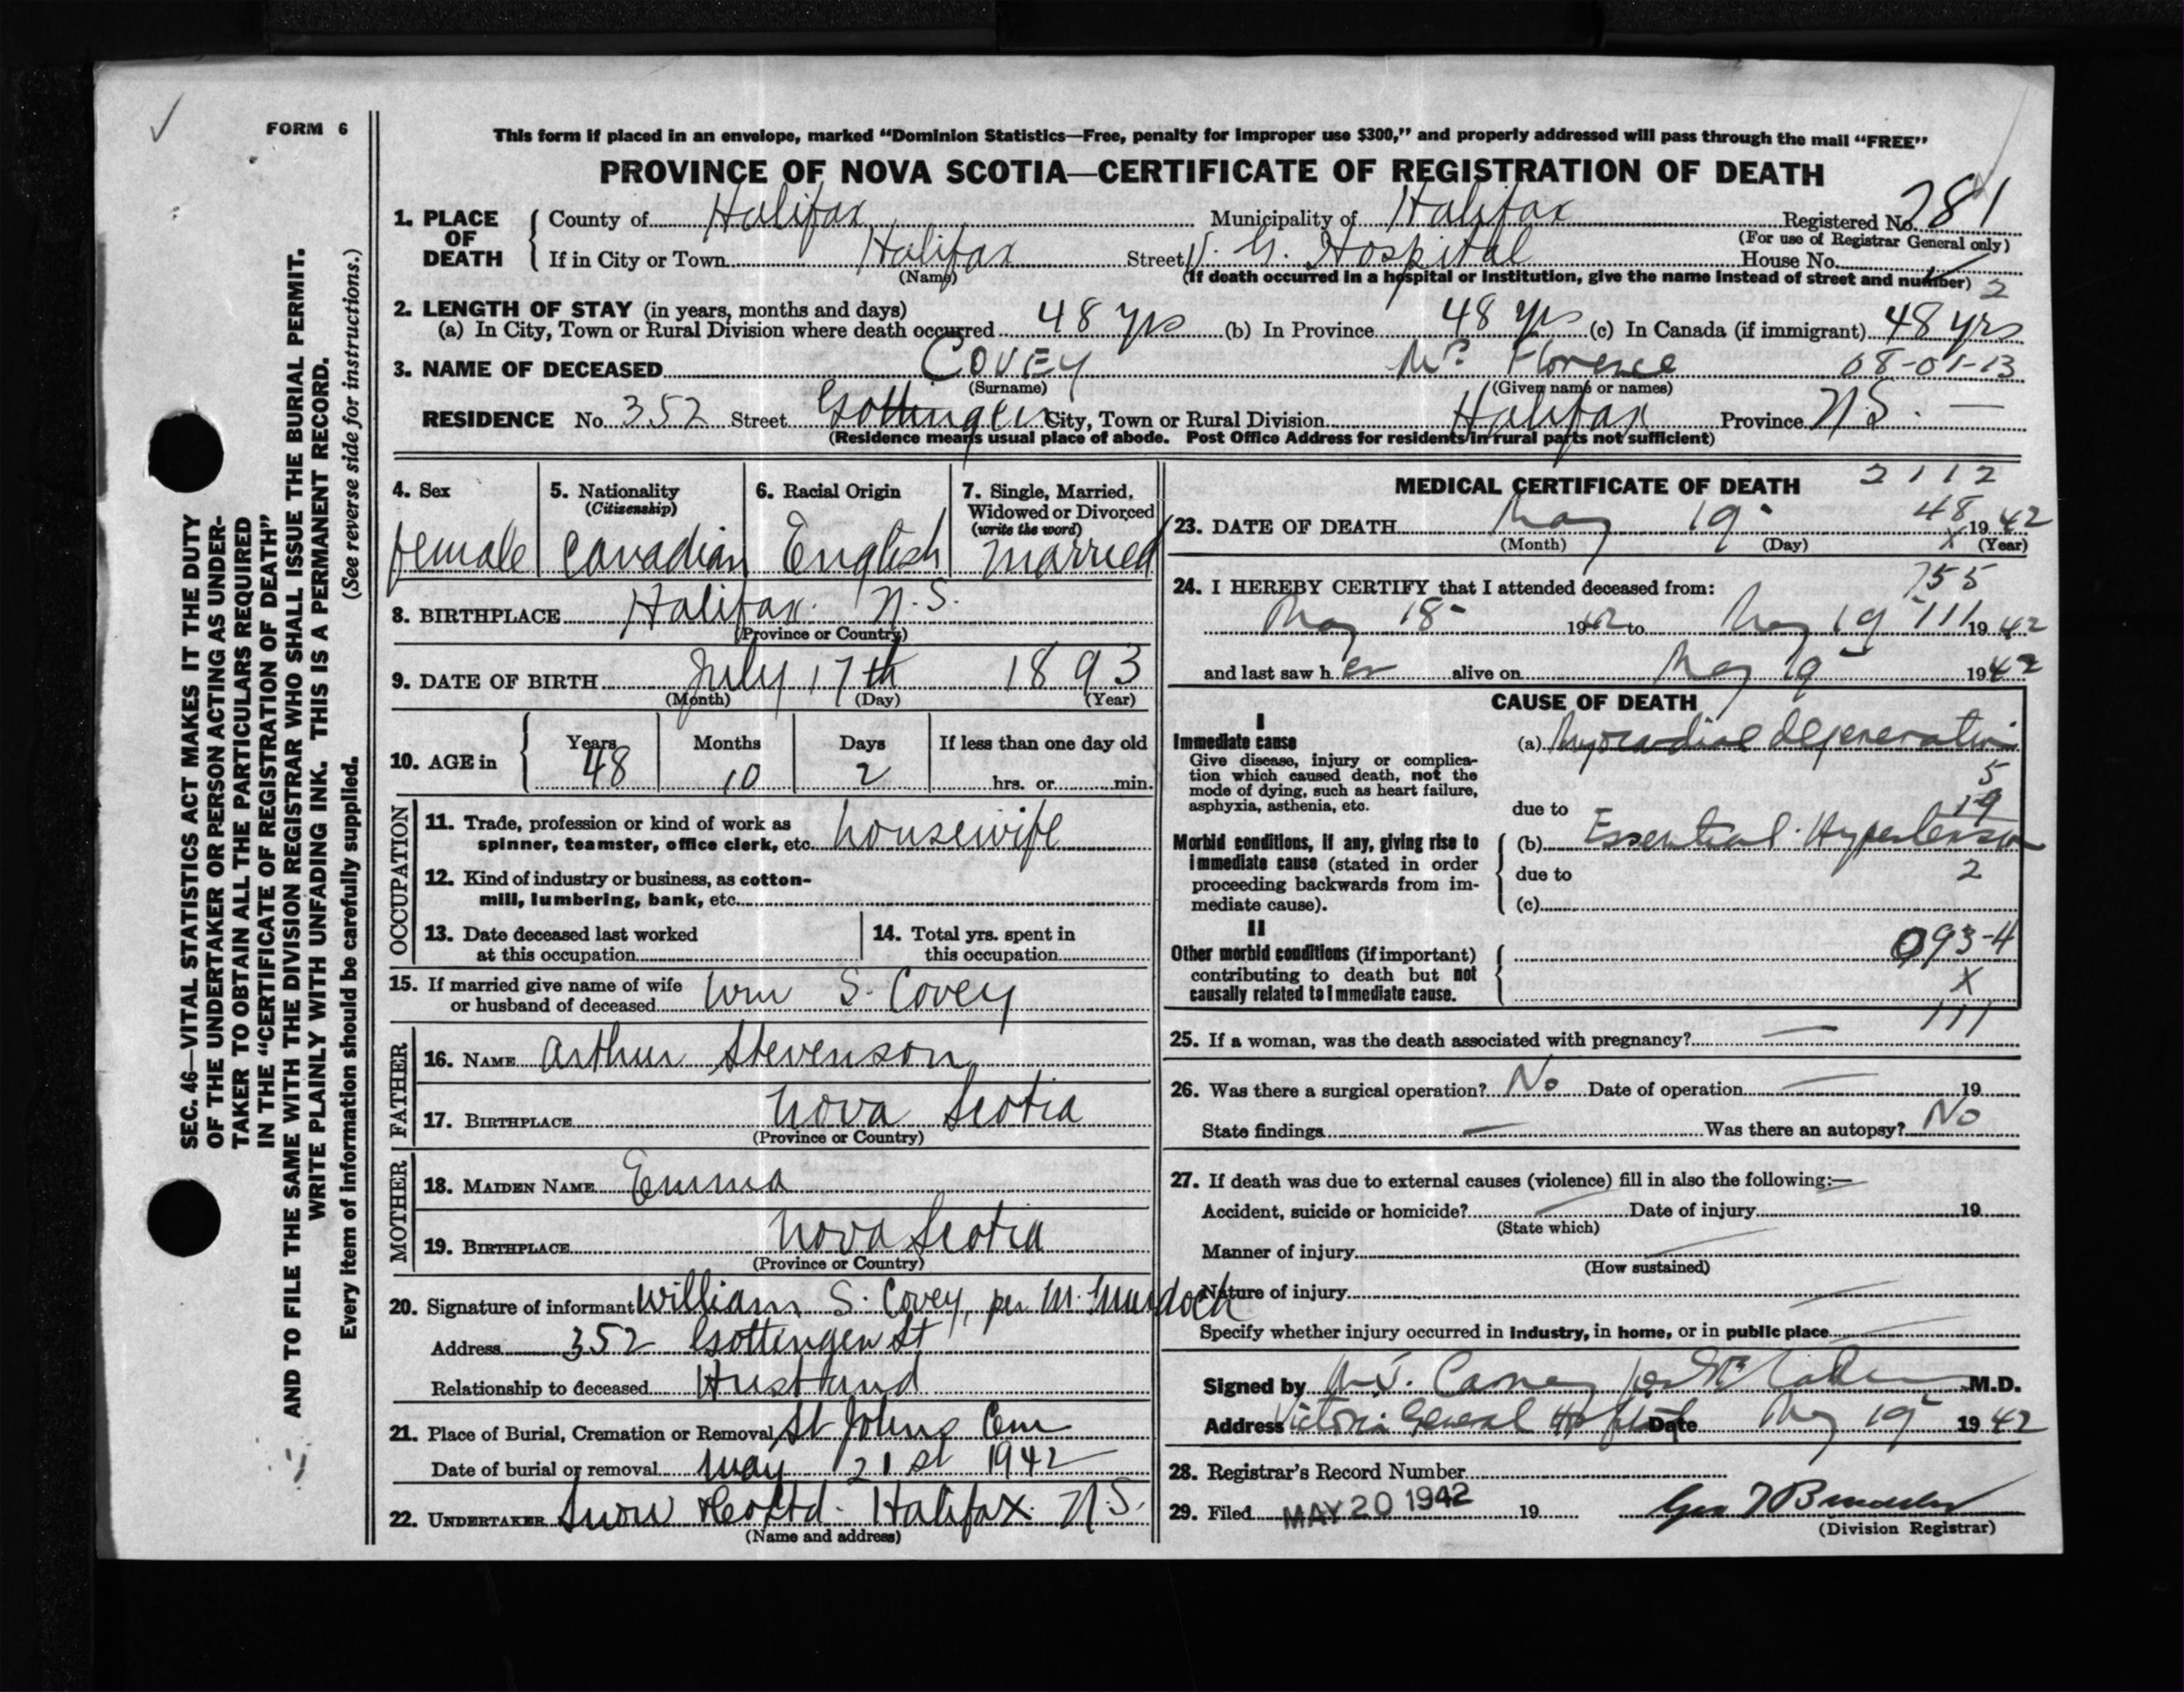 FORM 6
This form if placed in an envelope, marked “Dominion Statistics—Free, penalty for improper use $300,” and properly addressed will pass through the mail “FREE”
PROVINCE OF NOVA SCOTIA—CERTIFICATE OF REGISTRATION OF DEATH
1. PLACE OF DEATH
County of Halifax Municipality of Halifax Registered No. 781
(For use of Registrar General only)
If in City or Town Halifax Street V. G. Hospital House No.
(Name) (If death occurred in a hospital or institution, give the name instead of street and number) 2
2. LENGTH OF STAY (in years, months and days)
(a) In City, Town or Rural Division where death occurred 48 yrs (b) In Province 48 yrs (c) In Canada (if immigrant) 48 yrs
3. NAME OF DECEASED COVEY Mrs Florence 08-01-13
(Surname) (Given name or names)
RESIDENCE No. 352 Street Gottingen City, Town or Rural Division Halifax Province N.S. —
(Residence means usual place of abode. Post Office Address for residents in rural parts not sufficient)
4. Sex
female
5. Nationality
(Citizenship)
Canadian
6. Racial Origin
English
7. Single, Married, Widowed or Divorced
(write the word)
married
8. BIRTHPLACE Halifax. N.S.
(Province or Country)
9. DATE OF BIRTH July 17th 1893
(Month) (Day) (Year)
10. AGE in
Years Months Days If less than one day old
48 10 2 hrs. or min.
OCCUPATION
11. Trade, profession or kind of work as
spinner, teamster, office clerk, etc. housewife
12. Kind of industry or business, as cotton-
mill, lumbering, bank, etc.
13. Date deceased last worked
at this occupation
14. Total yrs. spent in
this occupation
15. If married give name of wife
or husband of deceased Wm S. Covey
FATHER
16. NAME Arthur Stevenson
17. BIRTHPLACE Nova Scotia
(Province or Country)
MOTHER
18. MAIDEN NAME Emma
19. BIRTHPLACE Nova Scotia
(Province or Country)
20. Signature of informant William S. Covey, per M. Murdoch
Address 352 Gottingen St
Relationship to deceased Husband
21. Place of Burial, Cremation or Removal St Johns Cem
Date of burial or removal May 21st 1942
22. UNDERTAKER Snow & Co Ltd. Halifax N.S.
(Name and address)
MEDICAL CERTIFICATE OF DEATH 2112
48
23. DATE OF DEATH May 19 1942
(Month) (Day) x (Year)
24. I HEREBY CERTIFY that I attended deceased from: 755
May 18 1942 to May 19 111 1942
and last saw her alive on May 19 1942
CAUSE OF DEATH
I
Immediate cause
Give disease, injury or complica-
tion which caused death, not the
mode of dying, such as heart failure,
asphyxia, asthenia, etc.
(a) Myocardial degeneration
5
19
due to
Morbid conditions, if any, giving rise to
immediate cause (stated in order
proceeding backwards from im-
mediate cause).
(b) Essential Hypertension
due to 2
(c)
II
Other morbid conditions (if important)
contributing to death but not
causally related to immediate cause.
093-4
X
111
25. If a woman, was the death associated with pregnancy? —
26. Was there a surgical operation? No Date of operation — 19
State findings — Was there an autopsy? No
27. If death was due to external causes (violence) fill in also the following:—
Accident, suicide or homicide? Date of injury 19
(State which)
Manner of injury
(How sustained)
Nature of injury
Specify whether injury occurred in industry, in home, or in public place
Signed by Carney per M.D.
Address Victoria General Hospital Date May 19 1942
28. Registrar's Record Number
29. Filed MAY 20 1942 19
(Division Registrar)
SEC. 46—VITAL STATISTICS ACT MAKES IT THE DUTY
OF THE UNDERTAKER OR PERSON ACTING AS UNDER-
TAKER TO OBTAIN ALL THE PARTICULARS REQUIRED
IN THE “CERTIFICATE OF REGISTRATION OF DEATH”
AND TO FILE THE SAME WITH THE DIVISION REGISTRAR WHO SHALL ISSUE THE BURIAL PERMIT.
WRITE PLAINLY WITH UNFADING INK. THIS IS A PERMANENT RECORD.
Every item of information should be carefully supplied. (See reverse side for instructions.)